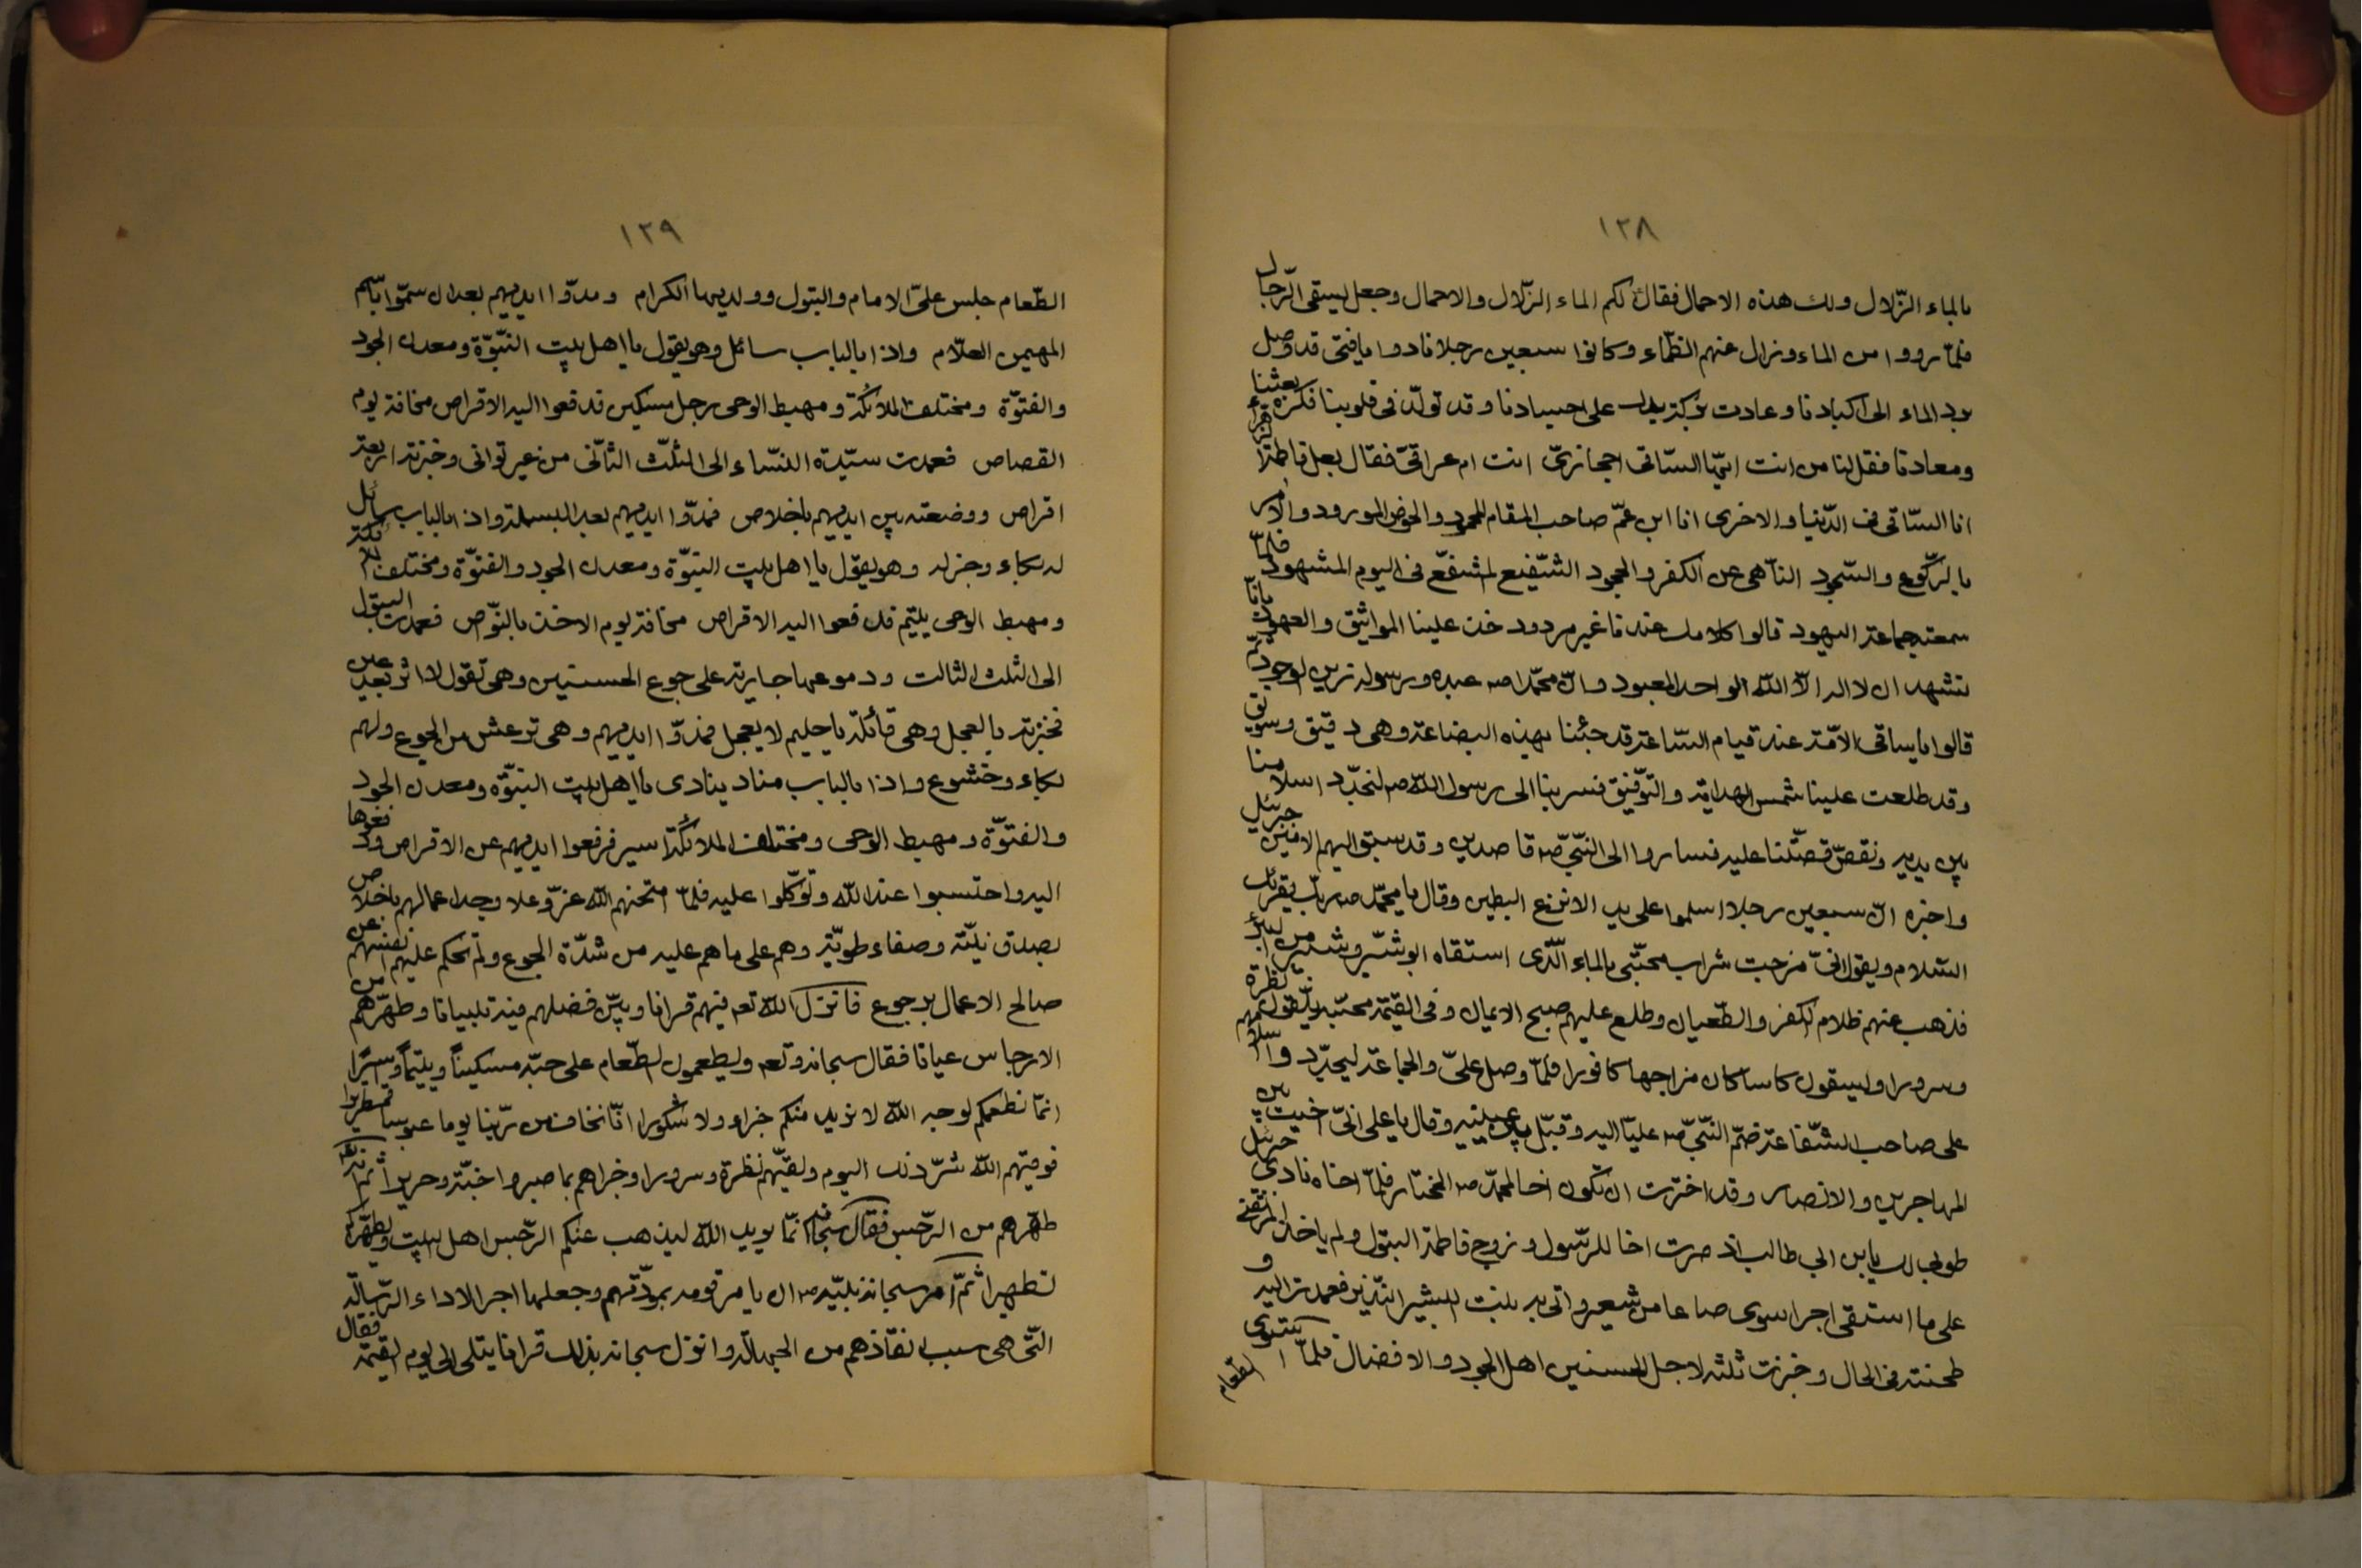 ١٢٨
بالماء الزّلال ولك هذه الاحمال فقال لكم الماء الزّلال والاحمال وجعل يسقى الرّجال
فلمّا رووا من الماء وزال عنهم الظّماء وكانوا سبعين رجلا نادوا يا فتى قد وصل
برد الماء الى اكبادنا وعادت بركة يدك على اجسادنا وقد تولّد فى قلوبنا فكرة بعثنا
ومعادنا فقل لنا من انت ايّها السّاقى احجازىّ انت ام عراقىّ فقال بعل فاطمة الزهراء
انا السّاقى فى الدّنيا والاخرى انا ابن عمّ صاحب المقام المحمود والحوض المورود والامر
بالرّكوع والسّجود النّاهى عن الكفر والجحود الشّفيع المشفّع فى اليوم المشهود فلمّا
سمعته جماعة اليهود قالوا كلامك عندنا غير مردود خذ علينا المواثيق والعهود بانّا
نشهد ان لا اله الّا الله الواحد المعبود وانّ محمّدا صه عبده ورسوله زين الوجود ثمّ
قالوا يا ساقى الامّة عند قيام السّاعة قد جئنا بهذه البضاعة وهى دقيق وسويق
وقد طلعت علينا شمس الهداية والتّوفيق فسر بنا الى رسول الله صه لنجدّد اسلامنا
بين يديه ونقصّ قصّتنا عليه فساروا الى النّبىّ صه قاصدين وقد سبق اليهم الامين جبرئيل
واخبره انّ سبعين رجلا اسلموا على يد الانزع البطين وقال يا محمّد صه ربّك يقرئك
السّلام ويقول انّى مزجت شراب محبّتى بالماء الّذى استقاه ابو شبّر وشبير من البئر
فذهب عنهم ظلام الكفر والطّغيان وطلع عليهم صبح الايمان وفى القيمة محبّيه يلقون نظرة
وسرورا وليسقون كاسا كان مزاجها كافورا فلمّا وصل علىّ والجماعة ليجدّد واسلامهم
على صاحب الشّفاعة ضمّ النّبىّ صه عليّا اليه وقبّل ما بين عينيه وقال يا على انّى اخيت بين
المهاجرين والانصار وقد اخترت ان تكون اخا لمحمّد صه المختار فلمّا اخاه نادى جبرئيل
طوبى لك يا بن ابى طالب اذ صرت اخا للرّسول وزوج فاطمة البتول ولم ياخذ المرتضى
على ما استقى اجرا سوى صاعا من شعير واتى به بنت البشير النّذير فعمدت اليه و
طحنته فى الحال وخبزت ثلثه لاجل الحسنين اهل الجود والافضال فلمّا استوى
الطّعام
١٢٩
الطّعام جلس علىّ الامام والبتول وولديهما الكرام ومدّوا ايديهم بعد ان سمّوا باسم
المهيمن العلّام واذا بالباب سائل وهو يقول يا اهل بيت النّبوّة ومعدن الجود
والفتوّة ومختلف الملائكة ومهبط الوحى رجل مسكين فدفعوا اليه الاقراص مخافة يوم
القصاص فعمدت سيّدة النسّاء الى الثلّث الثّانى من غير توانى وخبزته اربعة
اقراص ووضعته بين ايديهم باخلاص فمدّوا ايديهم بعد البسملة واذا بالباب سائل
له بكاء وحزن وهو يقول يا اهل بيت النبوّة ومعدن الجود والفتوّة ومختلف الملائكة
ومهبط الوحى يتيم فدفعوا اليه الاقراص مخافة يوم الاخذ بالنوّاص فعمدت البتول
الى الثلث الثالث ودموعها جارية على جوع الحسنين وهى تقول لا اثر بعد عين
فخبزته بالعجل وهى قائلة يا حليم لا يعجل فمدّوا ايديهم وهى ترعش من الجوع ولهم
بكاء وخشوع واذا بالباب مناد ينادى يا اهل بيت النبوّة ومعدن الجود
والفتوّة ومهبط الوحى ومختلف الملائكة اسير فرفعوا ايديهم عن الاقراص ودفعوها
اليه واحتسبوا عند الله وتوكّلوا عليه فلمّا امتحنهم الله عزّ وعلا وجد اعمالهم باخلاص
بصدق نيّة وصفاء طويّة وهم على ما هم عليه من شدّة الجوع ولم تحكم عليهم انفسهم عن
صالح الاعمال برجوع فانزل الله تعه فيهم قرانا وبيّن فضلهم فيه تبيانا وطهّرهم من
الارجاس عيانا فقال سبحانه وتعه ويطعمون الطّعام على حبّه مسكيناً ويتيماً واسيرًا
انّما نطعمكم لوجه الله لا نريد منكم جزاء ولا شكورا انّا نخاف من ربّنا يوما عبوسا قمطريرا
فوقيهم الله شرّ ذلك اليوم ولقّيهم نظرة وسرورا وجزاهم بما صبروا جنّة وحريرا ثمّ انّه
طهّرهم من الرّجس فقال سبحانه انّما يريد الله ليذهب عنكم الرّجس اهل البيت ويطهّركم
تطهيرا ثمّ امر سبحانه نبيّه صه ان يامر قومه بمودّتهم وجعلها اجر الاداء الرّسالة
التّى هى سبب انقاذهم من الجهالة وانزل سبحانه بذلك قرانا يتلى الى يوم القيمة فقال